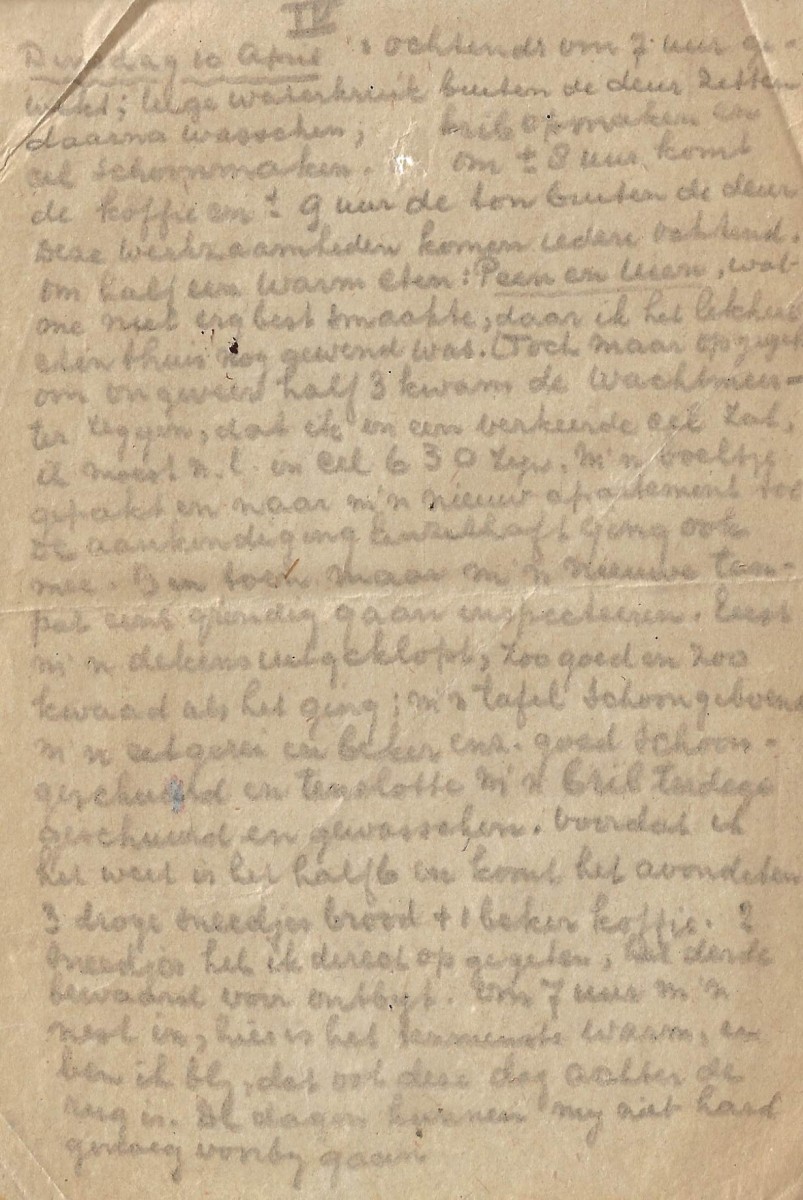 IV
Dinsdag 10 April 's ochtends om 7 uur ge-
wekt; lege waterkruik buiten de deur zetten
daarna wasschen; krib opmaken en
cel schoonmaken. om ± 8 uur komt
de koffie en ± 9 uur de ton buiten de deur
Deze werkzaamheden komen iedere ochtend.
om half een warm eten: Peen en uien, wat
me niet erg best smaakte, daar ik het lekkere
eten thuis nog gewend was. Toch maar opgeget
om ongeveer half 3 kwam de Wachtmees=
ter zeggen, dat ik in een verkeerde cel zat,
ik moest n.l. in cel 630 zijn. M'n boeltje
gepakt en naar m'n nieuw apartement toe
De aankondiging Einzelhaft ging ook
mee. Ben toen maar m'n nieuwe tem-
pat eens grondig gaan inspecteeren. Eerst
m'n dekens uitgeklopt, zoo goed en zoo
kwaad als het ging; m'n tafel schoongeboend
m'n eetgerei en beker enz. goed schoon-
geschuurd en tenslotte m'n kril terdege
geschuurd en gewasschen. Voordat ik
het weet is het half 6 en komt het avondeten
3 droge sneedjes brood + 1 beker koffie. 2
sneedjes heb ik direct opgegeten, het derde
bewaard voor ontbyt. Om 7 uur m'n
nest in, hier is het tenminste warm, en
ben ik bly, dat ook deze dag achter de
rug is. De dagen kunnen my niet hard
genoeg voorby gaan